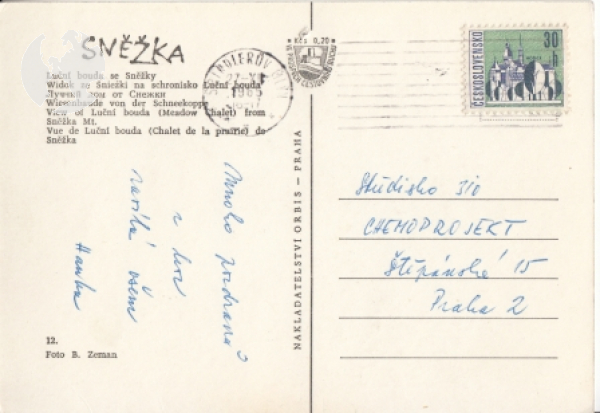 SNĚŽKA
Luční bouda se Sněžky
Widok ze Śnieżki na schronisko Luční bouda
Лучний дом от Снежки
Wiesenbaude von der Schneekoppe
View of Luční bouda (Meadow Chalet) from
Sněžka Mt.
Vue de Luční bouda (Chalet de la prairie) de
Sněžka
Mnoho pozdravů
z hor
zasílá všem
Hanka
12.
Foto B. Zeman
NAKLADATELSTVÍ ORBIS — PRAHA
1965
Kčs 0,20
ČESKOSLOVENSKO
30 h
Středisko 310
CHEMOPROJEKT
Štěpánská 15
Praha 2